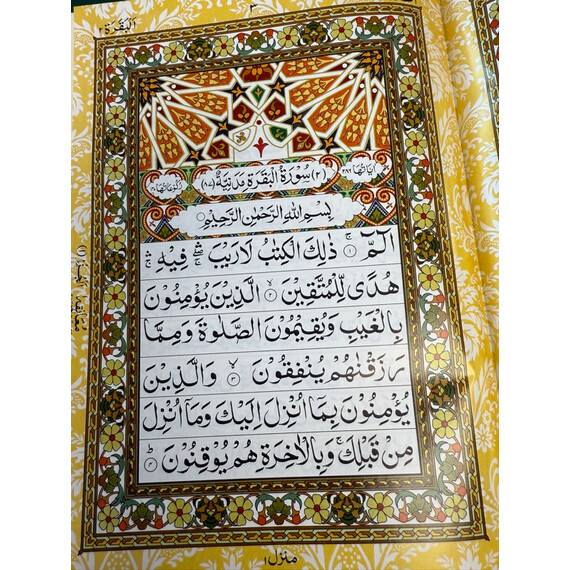 ٣
اَلْبَقَرَة ٢
اٰيَاتُهَا ٢٨٦ (٢) سُوْرَةُ الْبَقَرَةِ مَدَنِيَّةٌ (٨٧) رُكُوْعَاتُهَا ٤٠
بِسْمِ اللّٰهِ الرَّحْمٰنِ الرَّحِيْمِ
الٓمّٓ ۚ ١ ذٰلِكَ الْكِتٰبُ لَا رَيْبَ ۛۖ فِيْهِ ۛۚ
هُدًى لِّلْمُتَّقِيْنَ ۙ ٢ الَّذِيْنَ يُؤْمِنُوْنَ
بِالْغَيْبِ وَيُقِيْمُوْنَ الصَّلٰوةَ وَمِمَّا
رَزَقْنٰهُمْ يُنْفِقُوْنَ ۙ ٣ وَالَّذِيْنَ
يُؤْمِنُوْنَ بِمَآ اُنْزِلَ اِلَيْكَ وَمَآ اُنْزِلَ
مِنْ قَبْلِكَ ۚ وَبِالْاٰخِرَةِ هُمْ يُوْقِنُوْنَ ؕ ٤
منزل ١